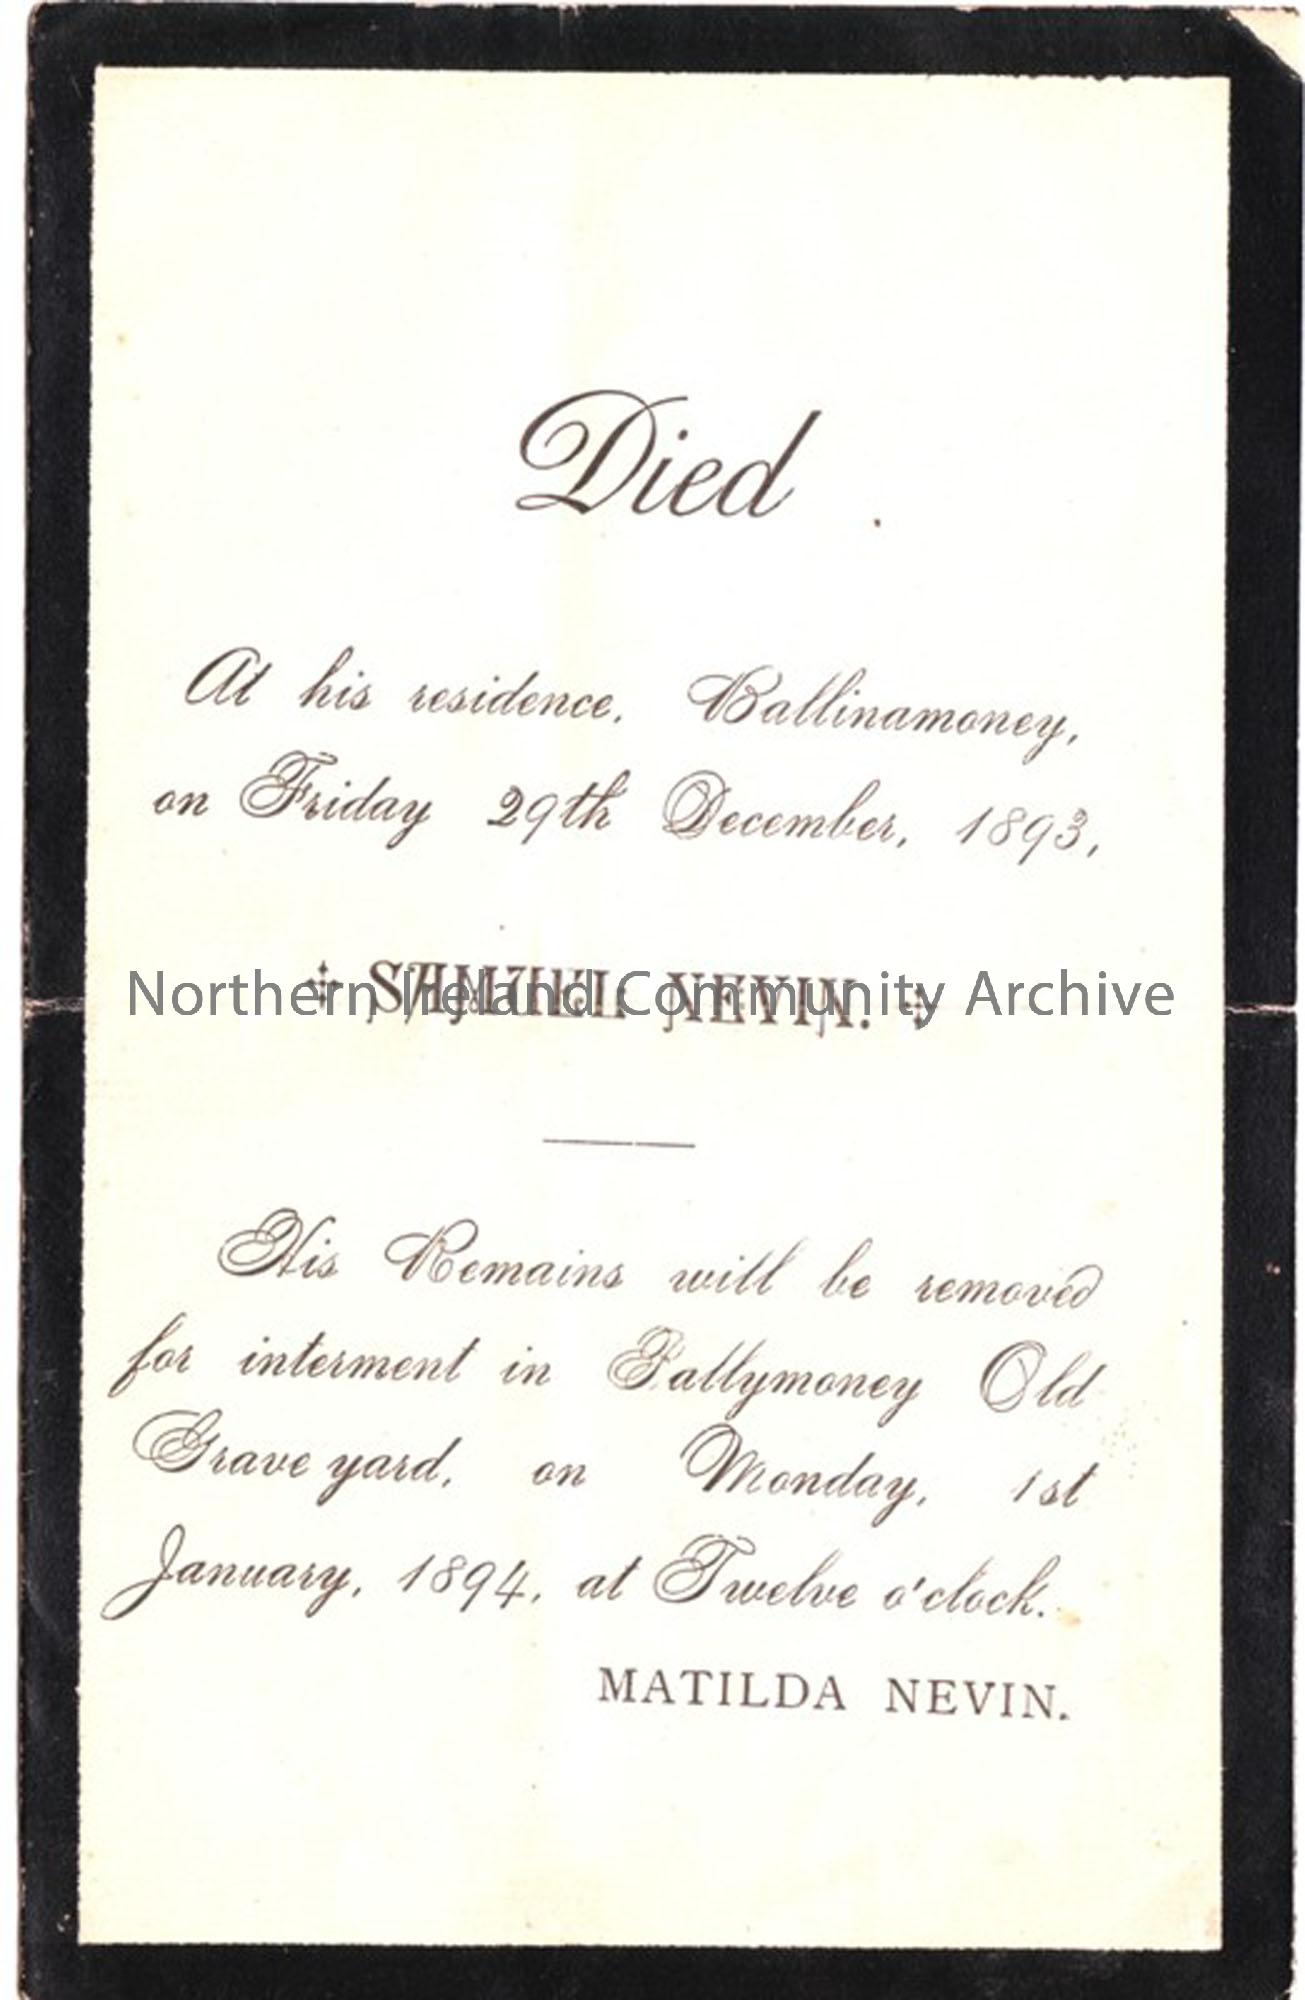 Died
At his residence, Ballinamoney,
on Friday 29th December, 1893,
SAMUEL NEVIN.
Northern Ireland Community Archive
His Remains will be removed
for interment in Ballymoney Old
Grave yard, on Monday, 1st
January, 1894, at Twelve o'clock.
MATILDA NEVIN.